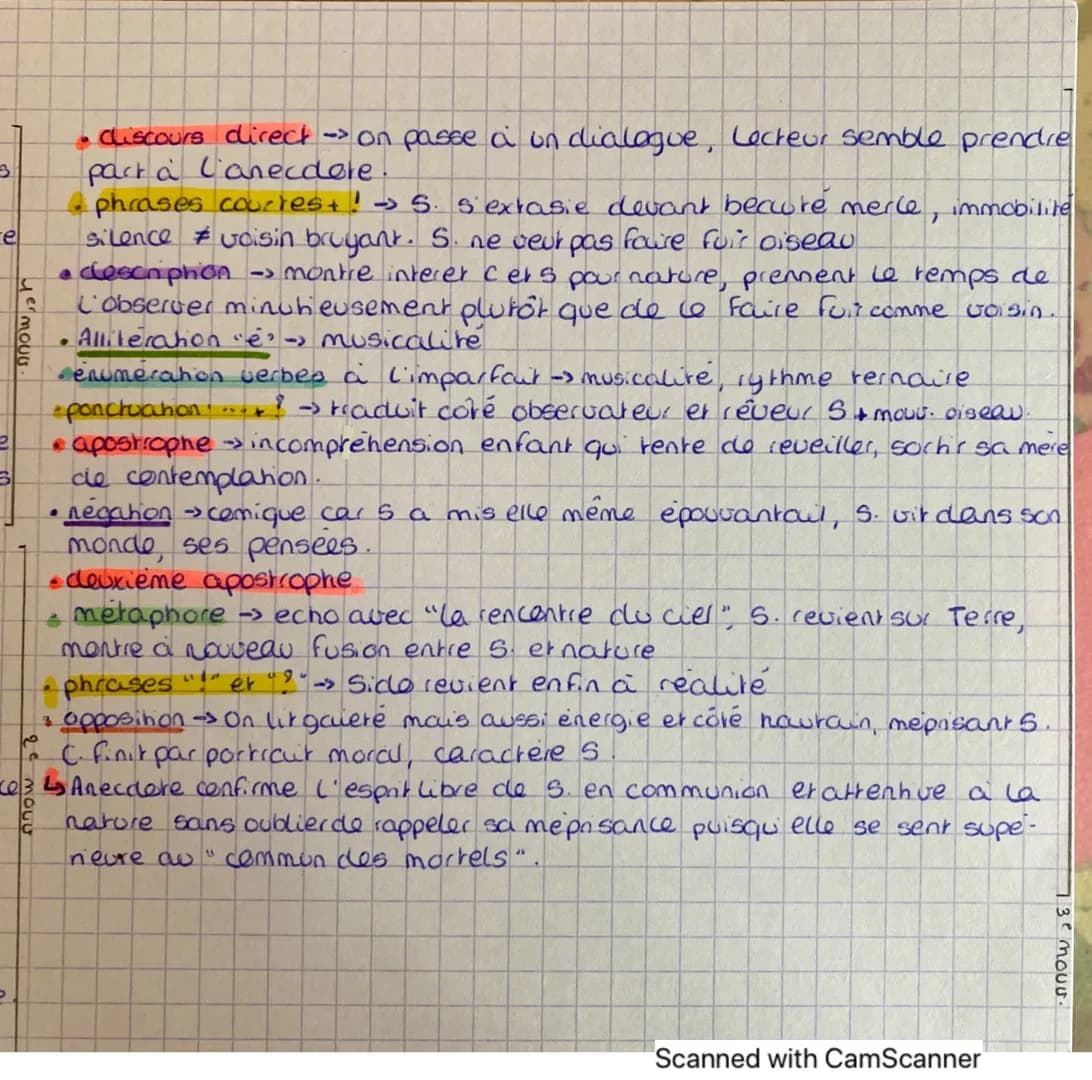 • discours direct -> on passe à un dialogue, Lecteur semble prendre
part à l'anecdote.
• phrases courtes + ! -> S. s'extasie devant beauté merle, immobilité
silence ≠ voisin bruyant. S. ne veut pas faire fuir oiseau
• description -> montre interet C et S pour nature, prennent le temps de
l'observer minutieusement plutôt que de le faire fuir comme voisin.
• Allitération "é" -> musicalité
• énumération verbes à l'imparfait -> musicalité, rythme ternaire
• ponctuation : ... + ? -> traduit coté observateur et rêveur S + mouv. oiseau.
• apostrophe -> incompréhension enfant qui tente de reveiller, sortir sa mère
de contemplation.
• négation -> comique car S a mis elle même épouvantail, S. vit dans son
monde, ses pensées.
• deuxième apostrophe
• métaphore -> echo avec "la rencontre du ciel", S. revient sur Terre,
montre à nouveau fusion entre S. et nature
• phrases "!" et "?" -> Sido revient enfin à réalité
• opposition -> On lit gaieté mais aussi énergie et côté hautain, méprisant S.
C. finit par portrait moral, caractère S.
↳ Anecdote confirme l'esprit libre de S. en communion et attentive à la
nature sans oublier de rappeler sa méprisance puisqu'elle se sent supé-
rieure au "commun des mortels".
1er mouv.
2e mouv
3e mouv.
Scanned with CamScanner